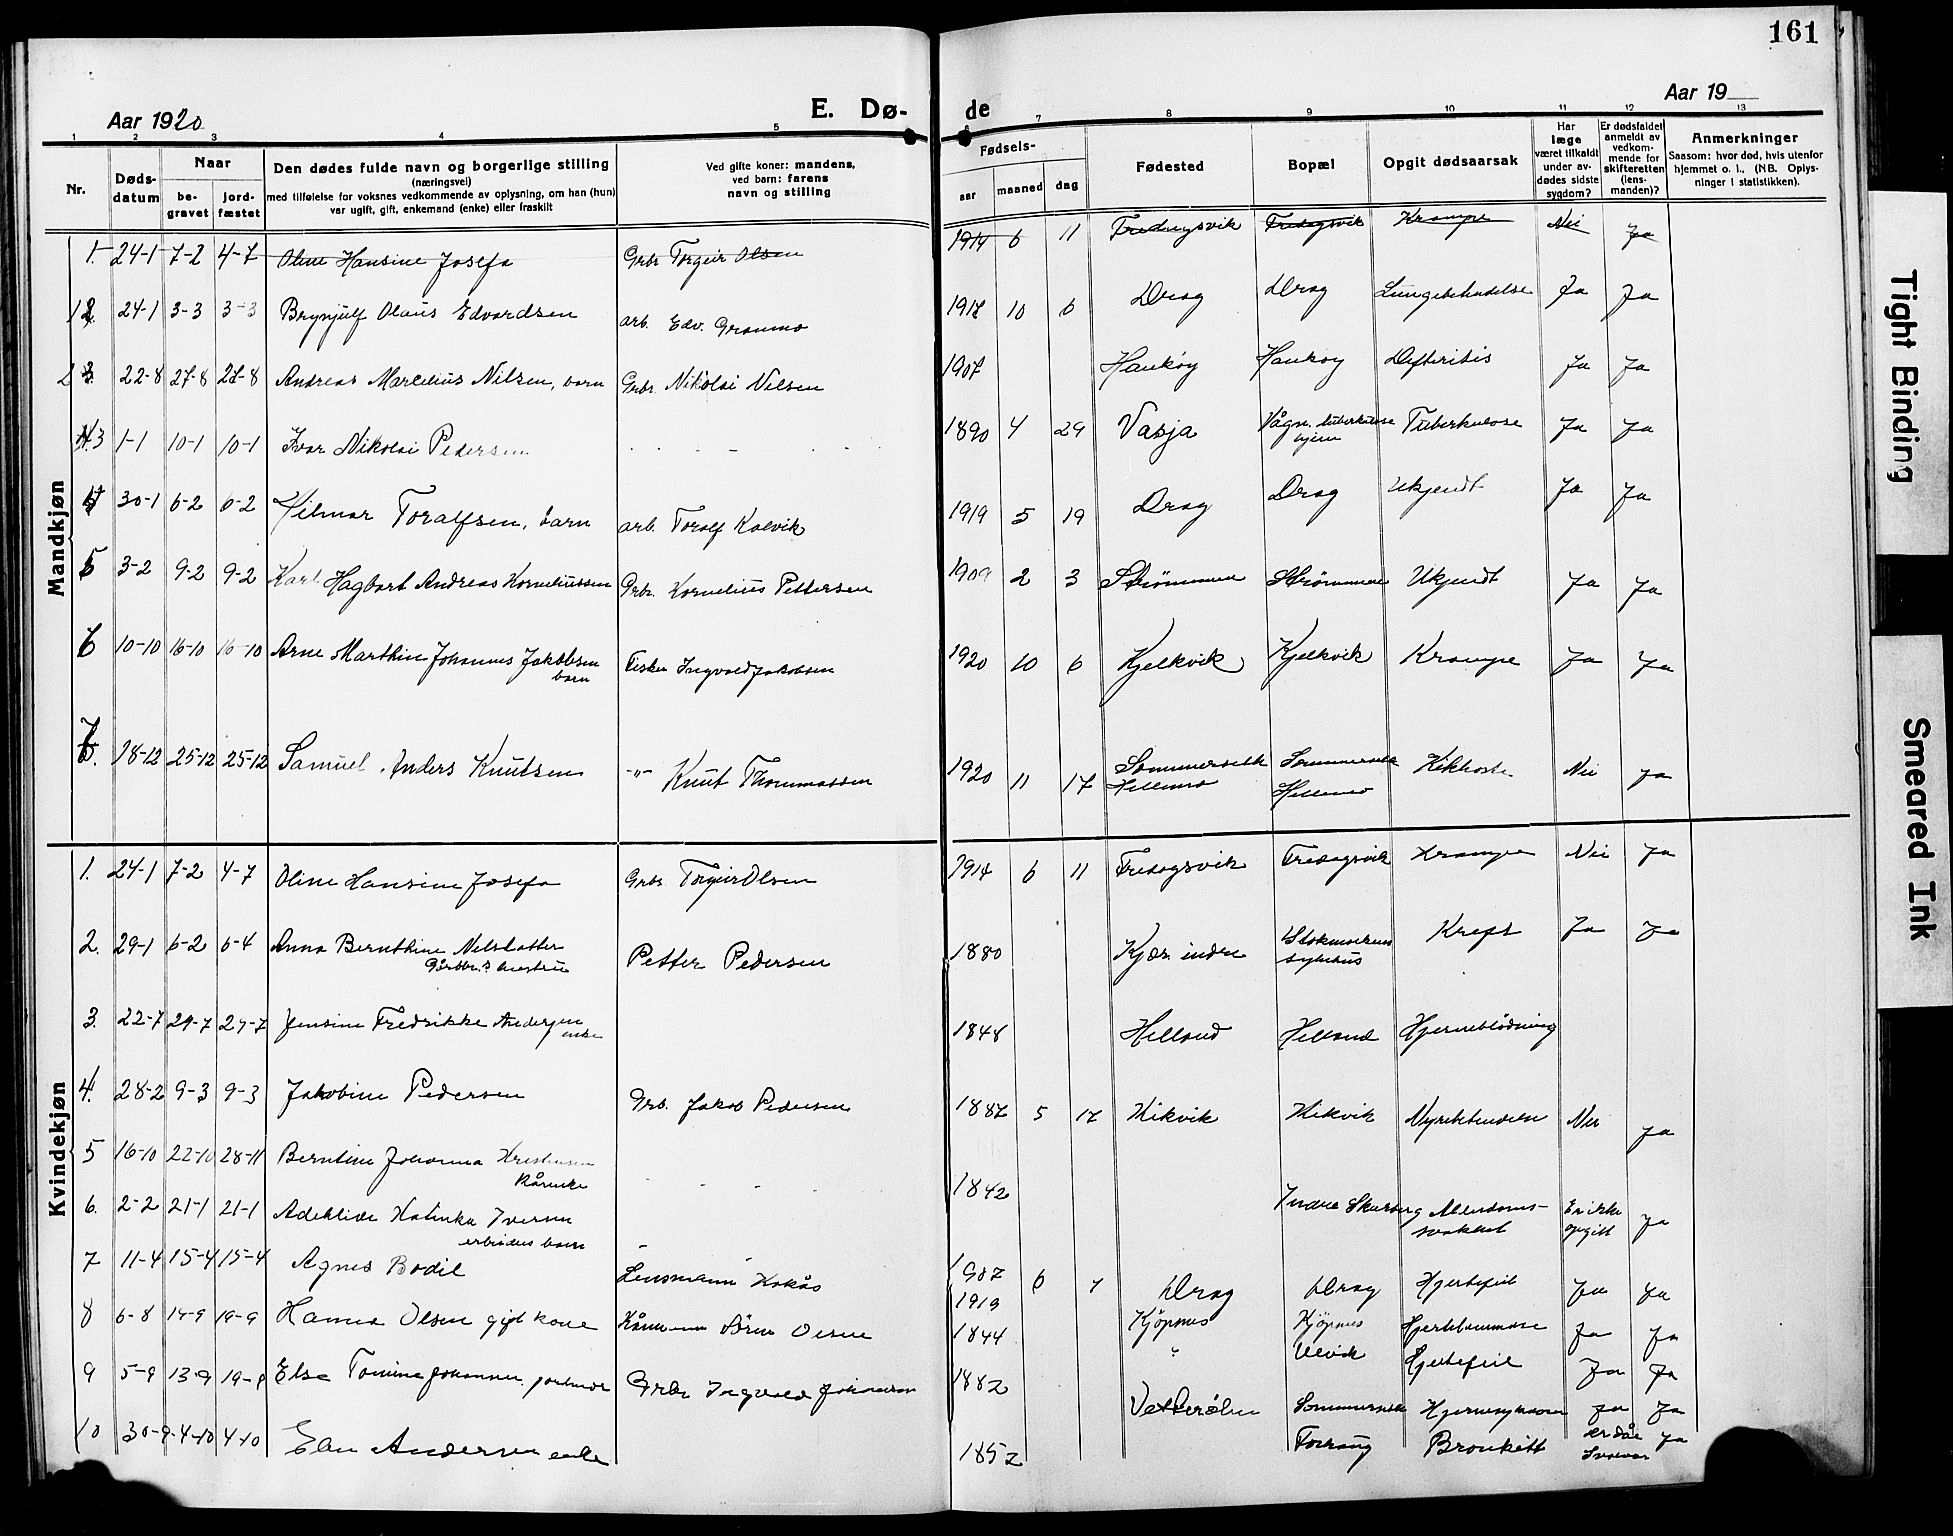 161
Aar 1920
E. Dø-
de
Aar 19
1 2 3 4 5 6 7 8 9 10 11 12 13
Nr.
Døds-
datum
Naar
be-
gravet
jord-
fæstet
Den dødes fulde navn og borgerlige stilling
(næringsvei)
med tilføielse for voksnes vedkommende av oplysning, om han (hun)
var ugift, gift, enkemand (enke) eller fraskilt
Ved gifte koner: mandens,
ved barn: farens
navn og stilling
Fødsels-
aar
maaned
dag
Fødested
Bopæl
Opgit dødsaarsak
Har
læge
været tilkaldt
under av-
dødes sidste
sygdom?
Er dødsfaldet
anmeldt av
vedkom-
mende for
skifteretten
(lens-
manden)?
Anmerkninger
Saasom: hvor død, hvis utenfor
hjemmet o. l.. (NB. Oplys-
ninger i statistikken).
Mandkjøn
1. 24-1 7-2 4-7 Oline Hansine Josefa Grbr Torgeir Olsen 1914 6 11 Fredagsvik Fredagsvik Krampe Nei Ja
2 24-1 3-3 3-3 Brynjulf Olaus Edvardsen arb. Edv. Granmo 10 6 Drag Drag Ja Ja
22-8 27-8 27-8 Andreas Nilsen, barn Grbr. Nikolai Nilsen 1907 Haukøy Haukøy Difteritis Ja Ja
3 1-1 10-1 10-1 Ivar Nikolai Pedersen 1890 4 29 Vasja Vågn. tuberkulose
hjem Tuberkulose Ja Ja
4 30-1 6-2 6-2 Hilmar Toralfsen, barn arb. Toralf Kalvik 1919 5 19 Drag Drag Ukjendt Ja Ja
5 3-2 9-2 9-2 Karl Hagbart Andreas Korneliussen Grbr. Kornelius Pettersen 1909 2 3 Strømmen Strømmen Ukjendt Ja Ja
6 10-10 16-10 16-10 Arne Marthin Johannes Jakobsen
barn Fisker Ingvald Jakobsen 1920 10 6 Kjelkvik Kjelkvik Krampe Ja Ja
7 18-12 25-12 25-12 Samuel Anders Knutsen -"- Knut Thommassen 1920 11 17 Sommerset
Hellemo Sommerset
Hellemo Kikhoste Nei Ja
Kvindekjøn
1. 24-1 7-2 4-7 Oline Hansine Josefa Grbr. Torgeir Olsen 1914 6 11 Fredagsvik Fredagsvik Krampe Nei Ja
2. 29-1 6-2 6-4 Anna Bernthine Nelsdatter
Petter Pedersen 1880 Kjær indre Stokmarknes
sykehus Kreft Ja Ja
3. 22-7 29-7 29-7 Jensine Fredrikke Andersen
enke 1848 Helland Helland Hjerneblödning
4. 28-2 9-3 9-3 Jakobine Pedersen Grb. Jakob Pedersen 1887 5 17 Kikvik Kikvik Nyrebetendelse Nei Ja
5 16-10 22-10 28-11 Berntine Johanna Kristiansen
Kårenke 1842 Indre
6. 2-2 21-1 21-1 Adeklide Katinka Iversen
barn Er ikke
opgitt Ja
7 11-4 15-4 15-4 Agnes Bodil Lensmann Kokås 1919 6 7 Drag Drag Hjertefeil Ja Ja
8 6-8 14-9 19-9 Hanna Olsen gift kone Kårmann Sören Olsen 1844 Kjöpnes Kjöpnes Ja Ja
9 5-9 13-9 19-9 Else Tomine Johansen Grbr Ingvald Johansen 1882 Ulvik Hjertefeil Ja Ja
Sommerset Ja Ja
10 30-9 4-10 4-10 Elen Andersen enke 1852 Bronkitt Ja
Tight Binding
Smeared Ink